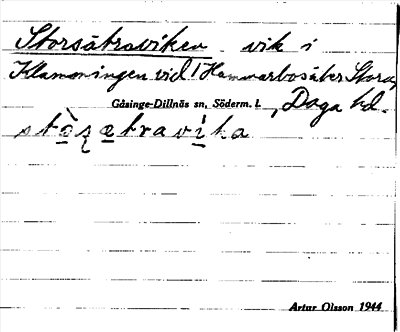 Storsätraviken vik i
Klämmingen vid Hammarbosäter Stora,
Gåsinge-Dillnäs sn, Söderm. l. , Daga hd.
Artur Olsson 1944